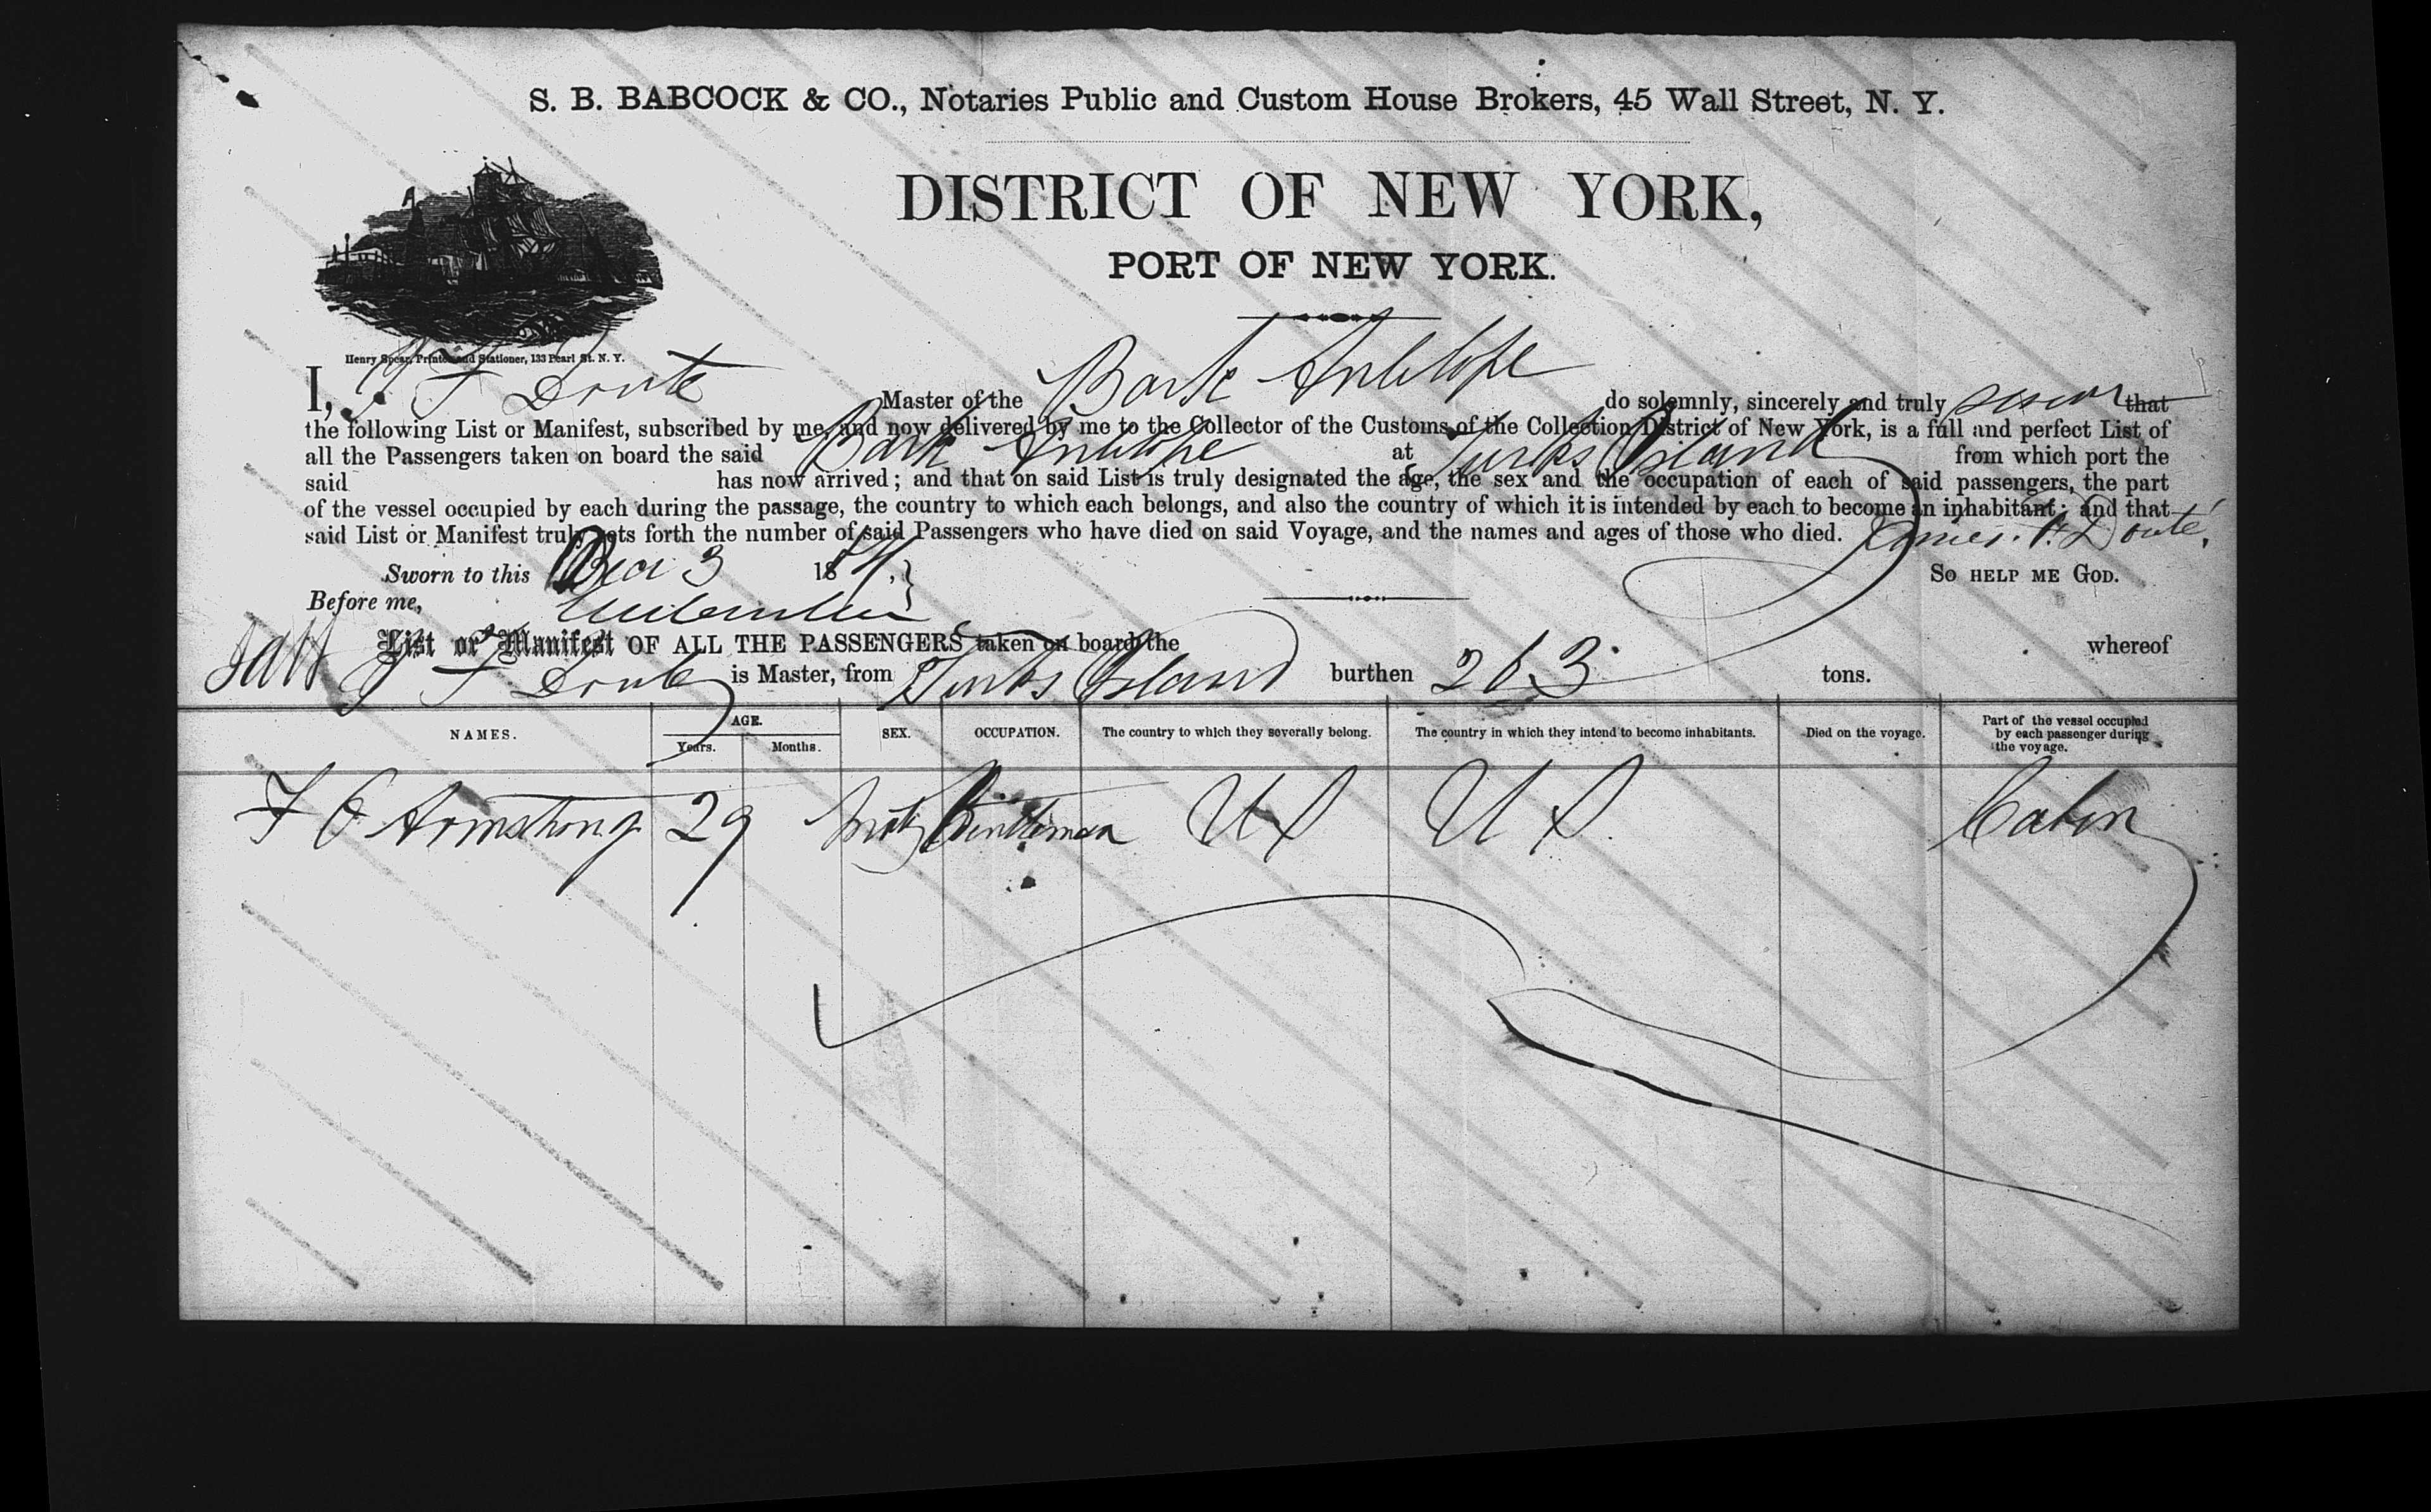 S. B. BABCOCK & CO., Notaries Public and Custom House Brokers, 45 Wall Street, N. Y.
DISTRICT OF NEW YORK,
PORT OF NEW YORK.
Henry Spear, Printer and Stationer, 133 Pearl St. N. Y.
I, J F Doute Master of the Bark Antelope do solemnly, sincerely and truly swear that
the following List or Manifest, subscribed by me, and now delivered by me to the Collector of the Customs of the Collection District of New York, is a full and perfect List of
all the Passengers taken on board the said Bark Antelope at Turks Island from which port the
said has now arrived; and that on said List is truly designated the age, the sex and the occupation of each of said passengers, the part
of the vessel occupied by each during the passage, the country to which each belongs, and also the country of which it is intended by each to become an inhabitant; and that
said List or Manifest truly sets forth the number of said Passengers who have died on said Voyage, and the names and ages of those who died. James. F. Doute,
Sworn to this Dec 3 18 So HELP ME GOD.
Before me,
List or Manifest OF ALL THE PASSENGERS taken on board the whereof
J F Doute is Master, from Turks Island burthen 263 tons.
NAMES. AGE. SEX. OCCUPATION. The country to which they severally belong. The country in which they intend to become inhabitants. Died on the voyage. Part of the vessel occupied by each passenger during the voyage.
Years. Months.
F O Armstrong 29 Gentleman U S U S Cabin